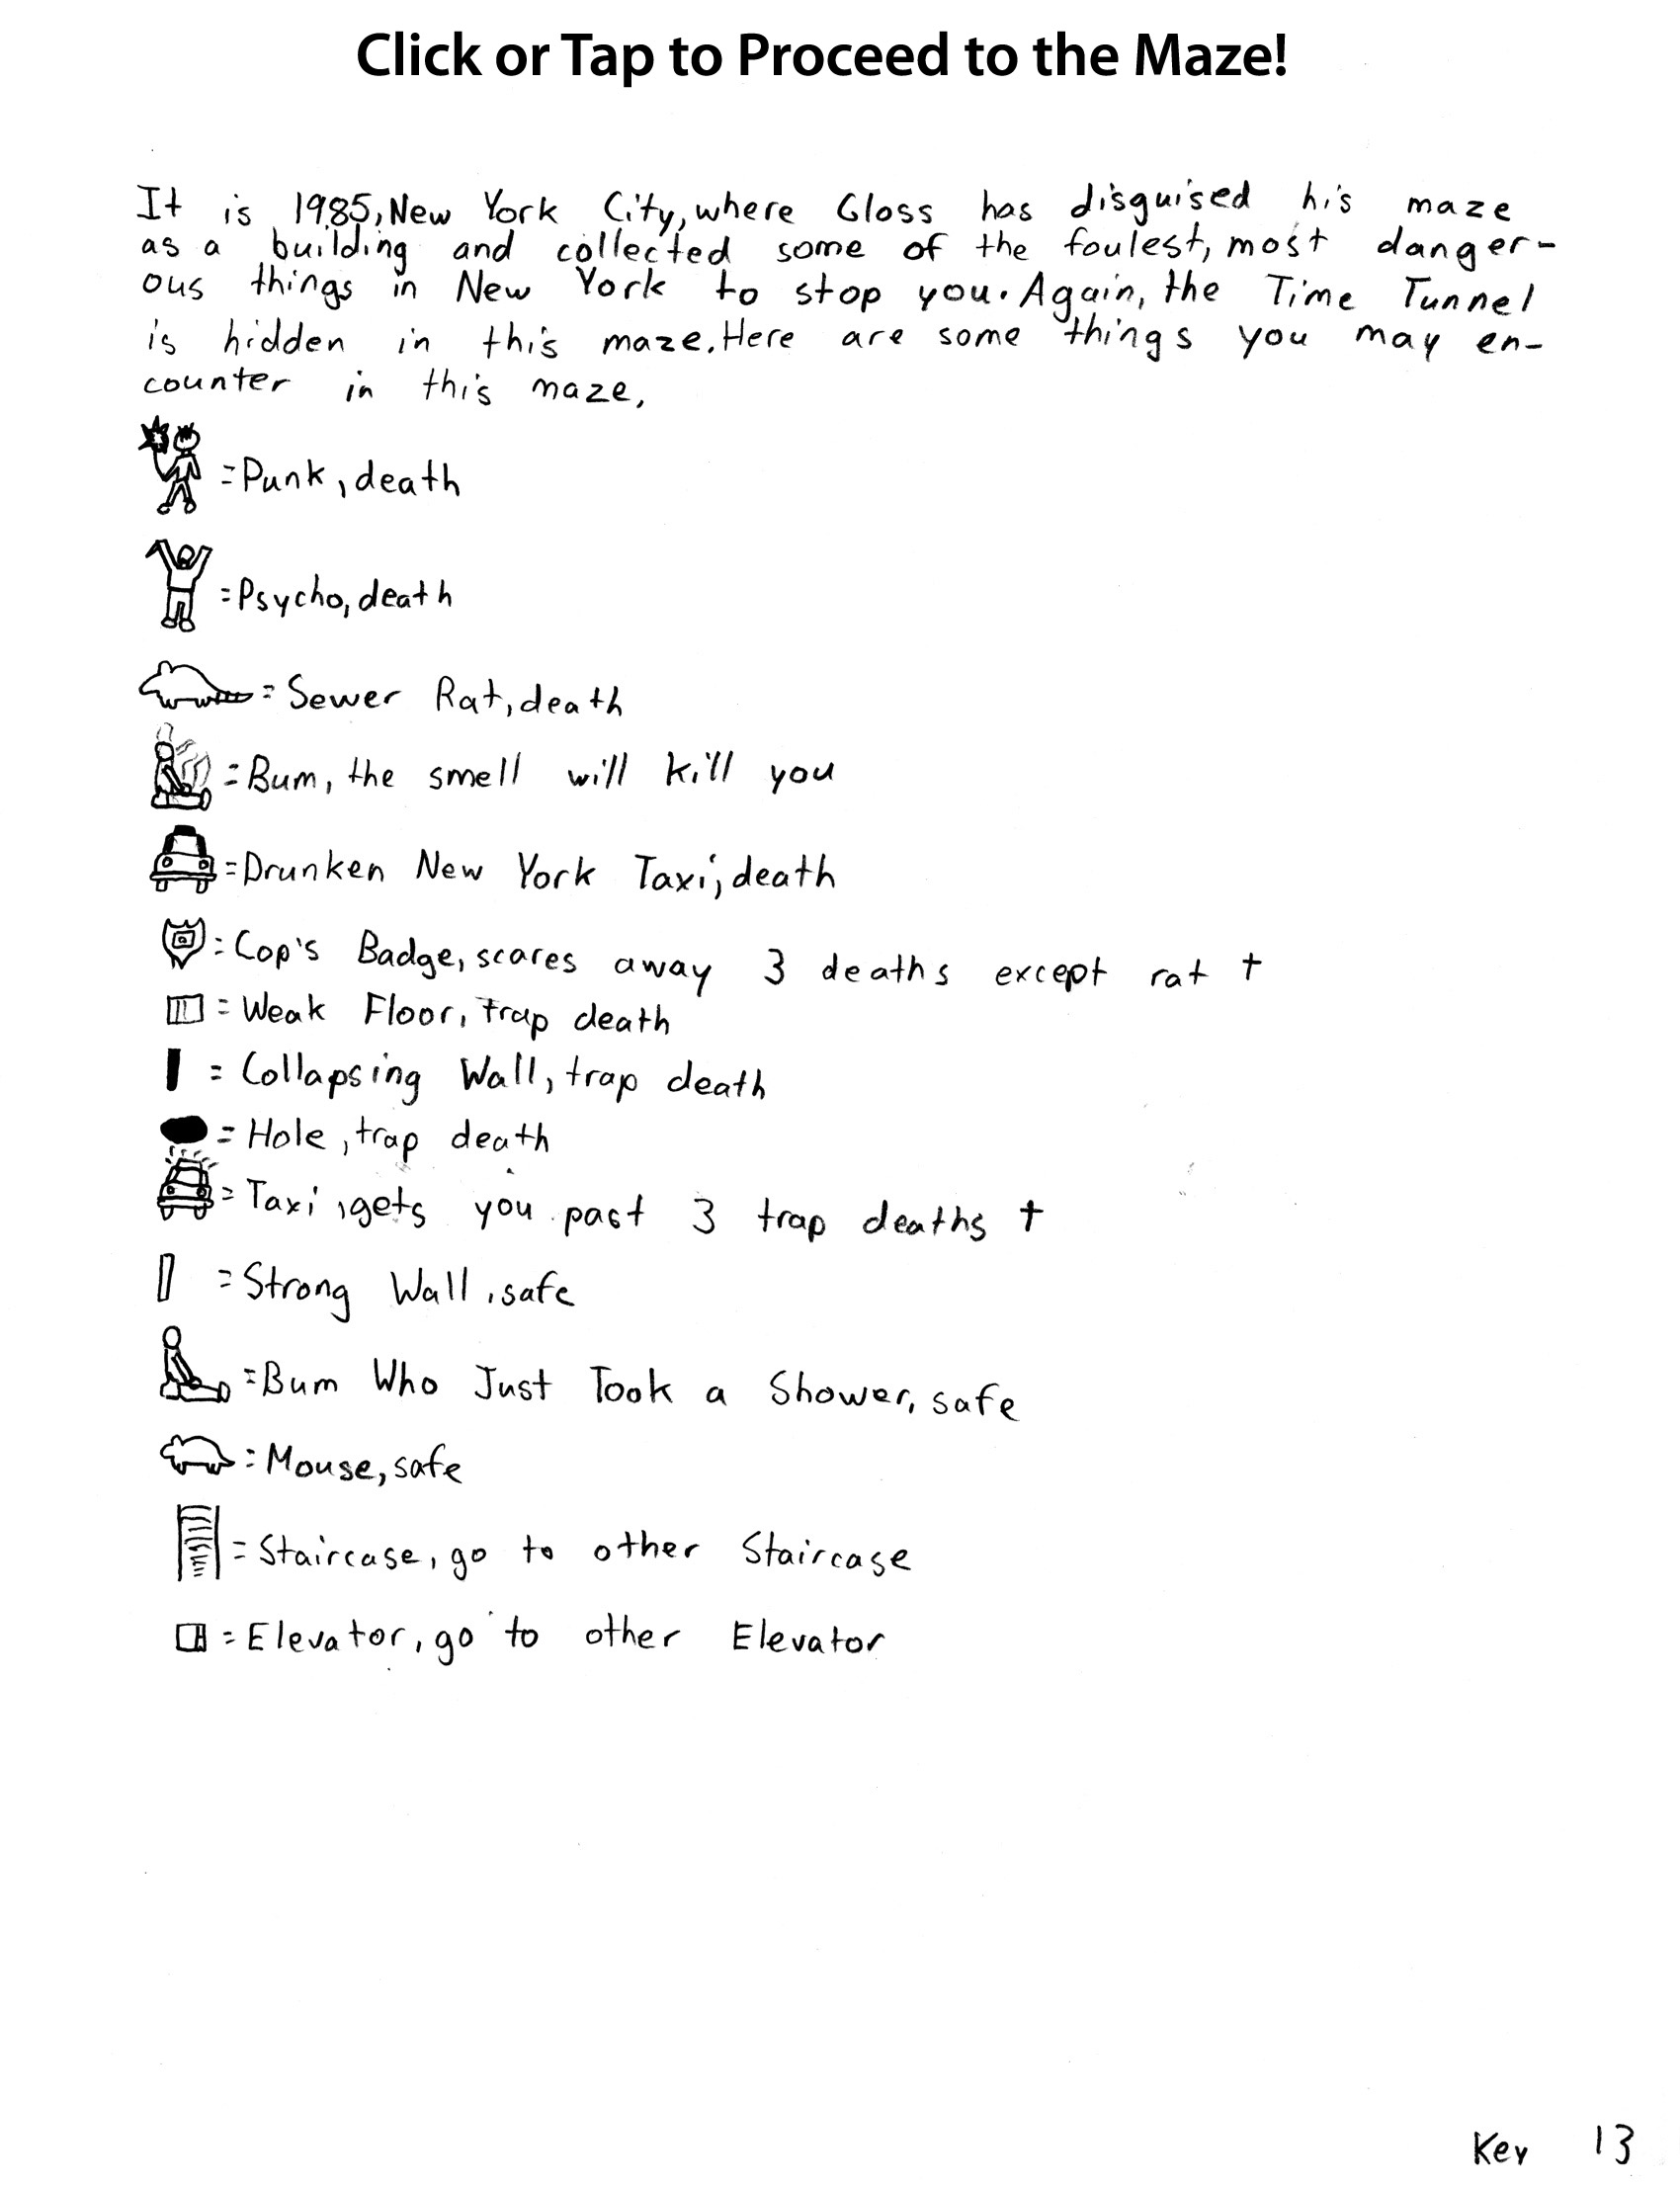 Click or Tap to Proceed to the Maze!
It is 1985, New York City, where Gloss has disguised his maze
as a building and collected some of the foulest, most danger-
ous things in New York to stop you. Again, the Time Tunnel
is hidden in this maze. Here are some things you may en-
counter in this maze.
=Punk, death
=Psycho, death
=Sewer Rat, death
=Bum, the smell will kill you
=Drunken New York Taxi, death
=Cop's Badge, scares away 3 deaths except rat †
=Weak Floor, trap death
=Collapsing Wall, trap death
=Hole, trap death
=Taxi, gets you past 3 trap deaths †
=Strong Wall, safe
=Bum Who Just Took a Shower, safe
=Mouse, safe
=Staircase, go to other Staircase
=Elevator, go to other Elevator
Key 13